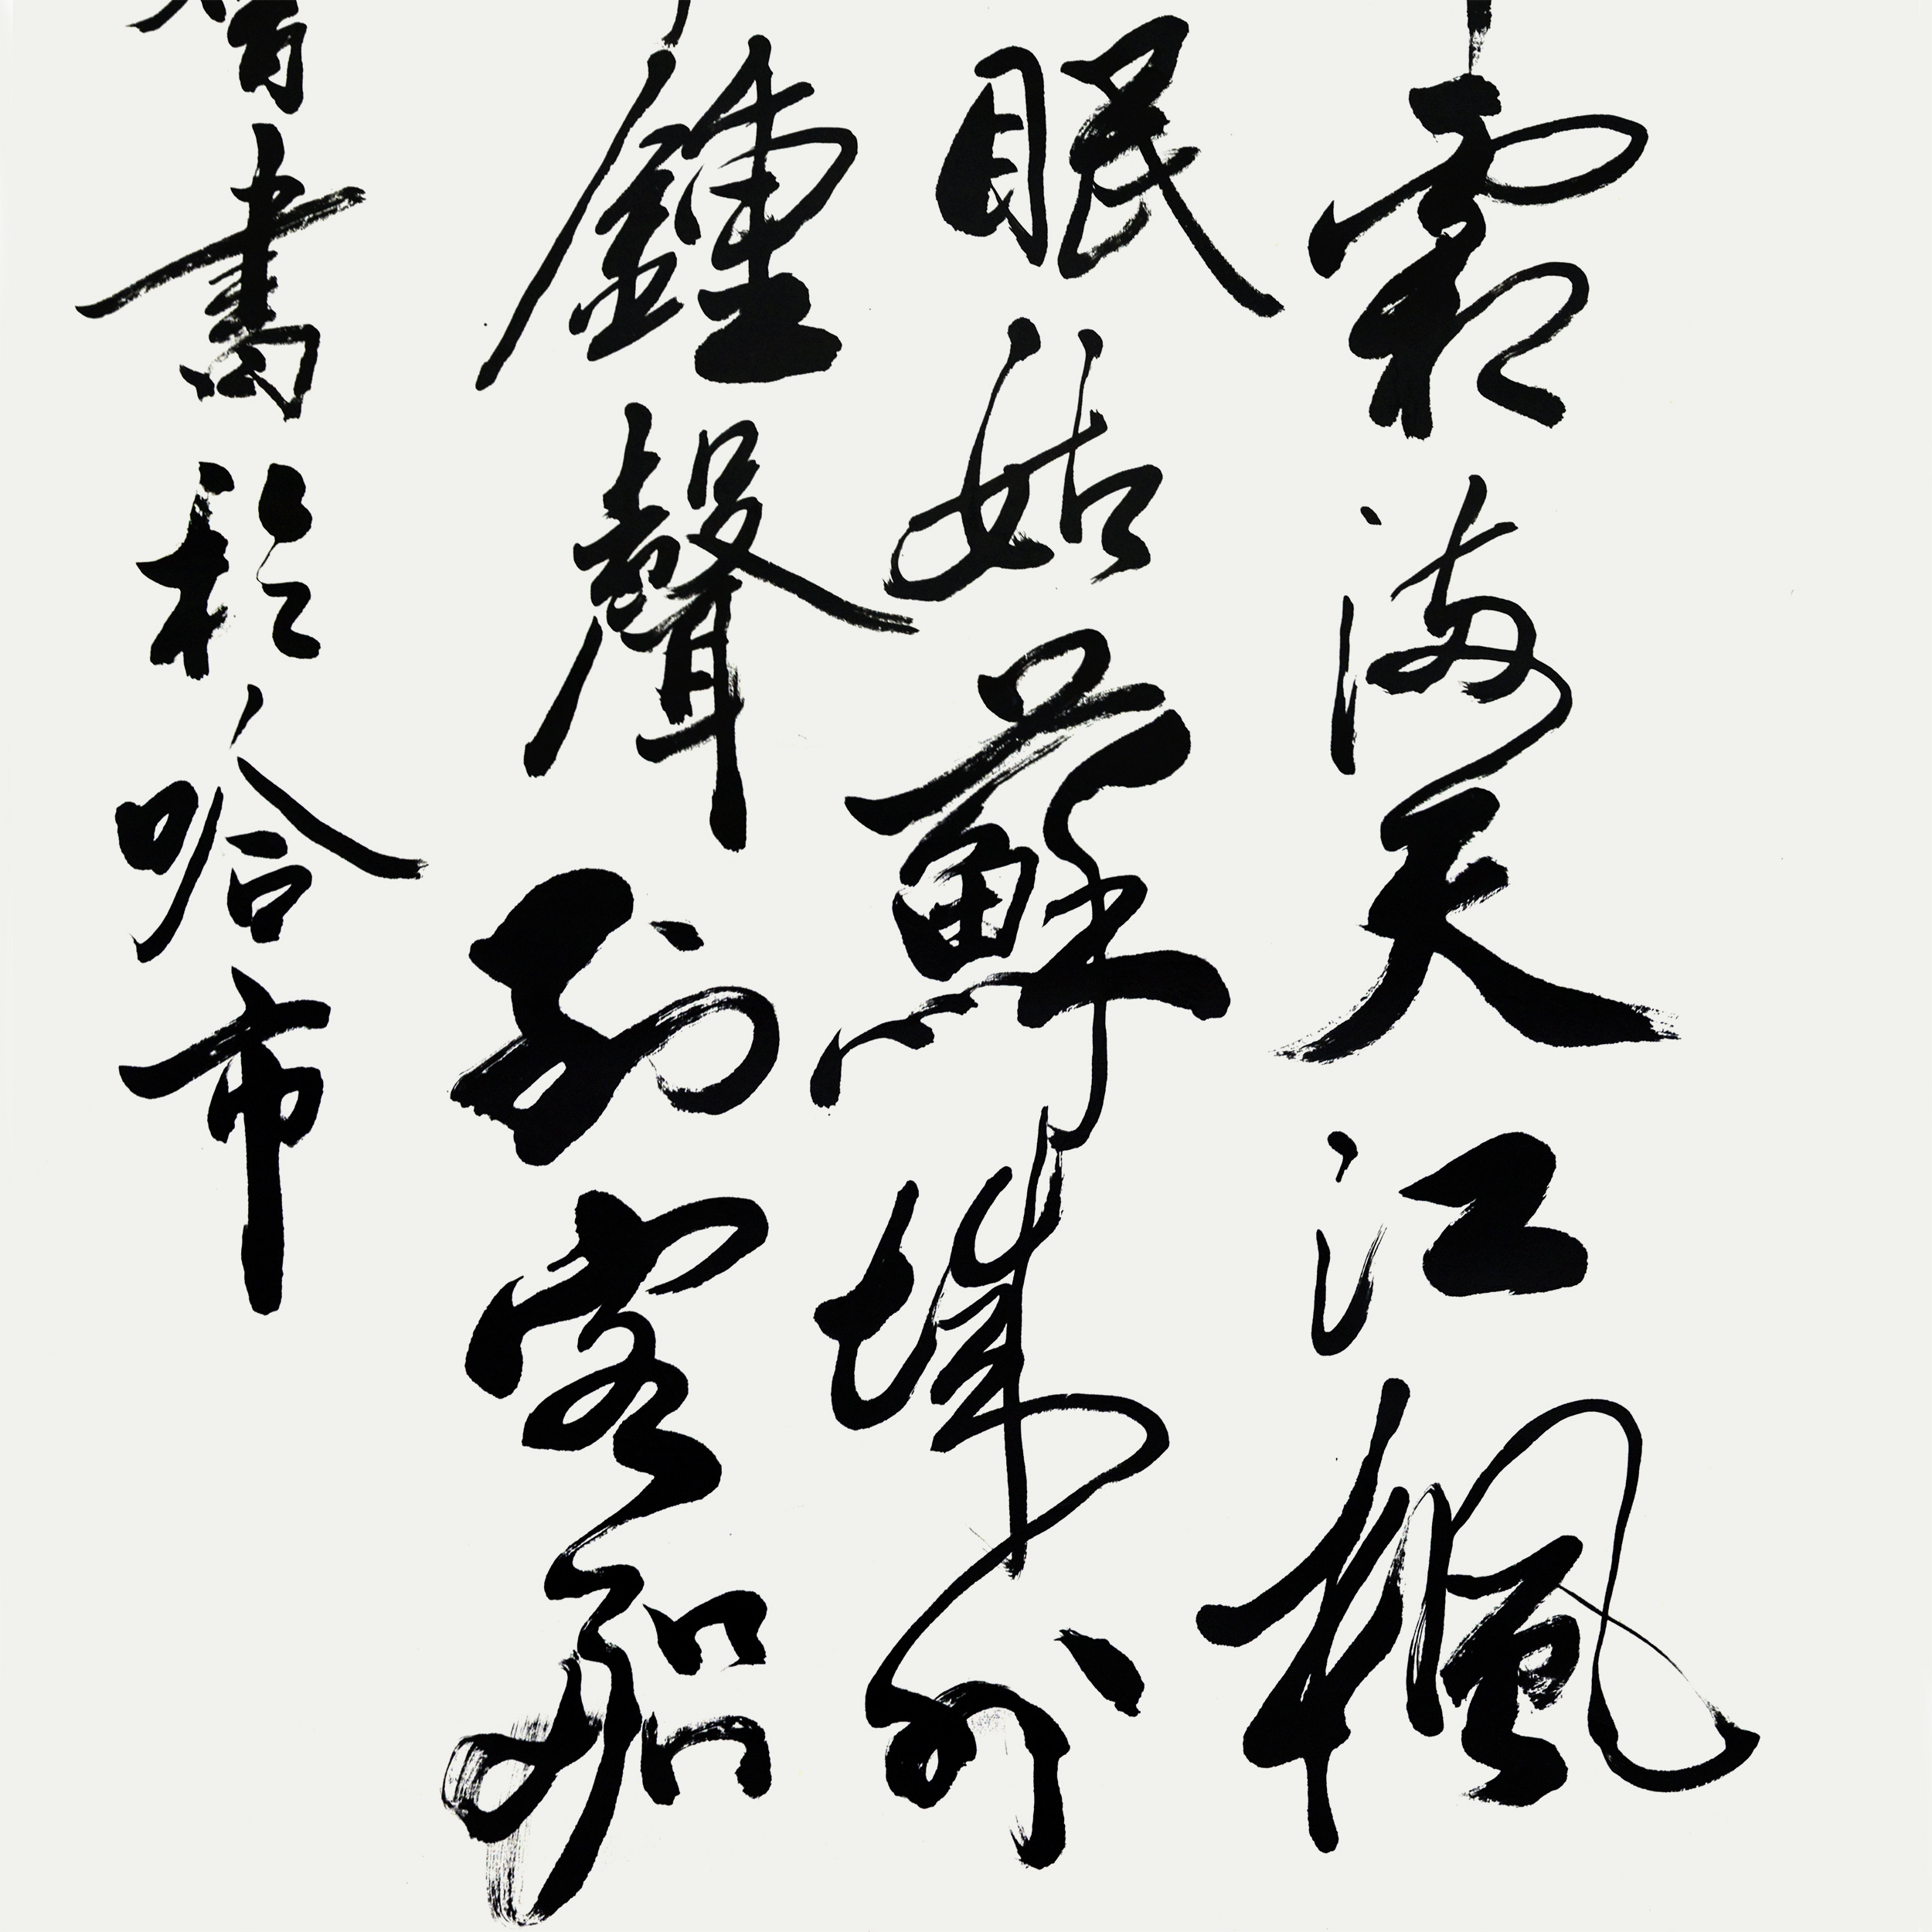 霜滿天江楓
眠姑蘇城外
鍾聲到客船
書於哈市